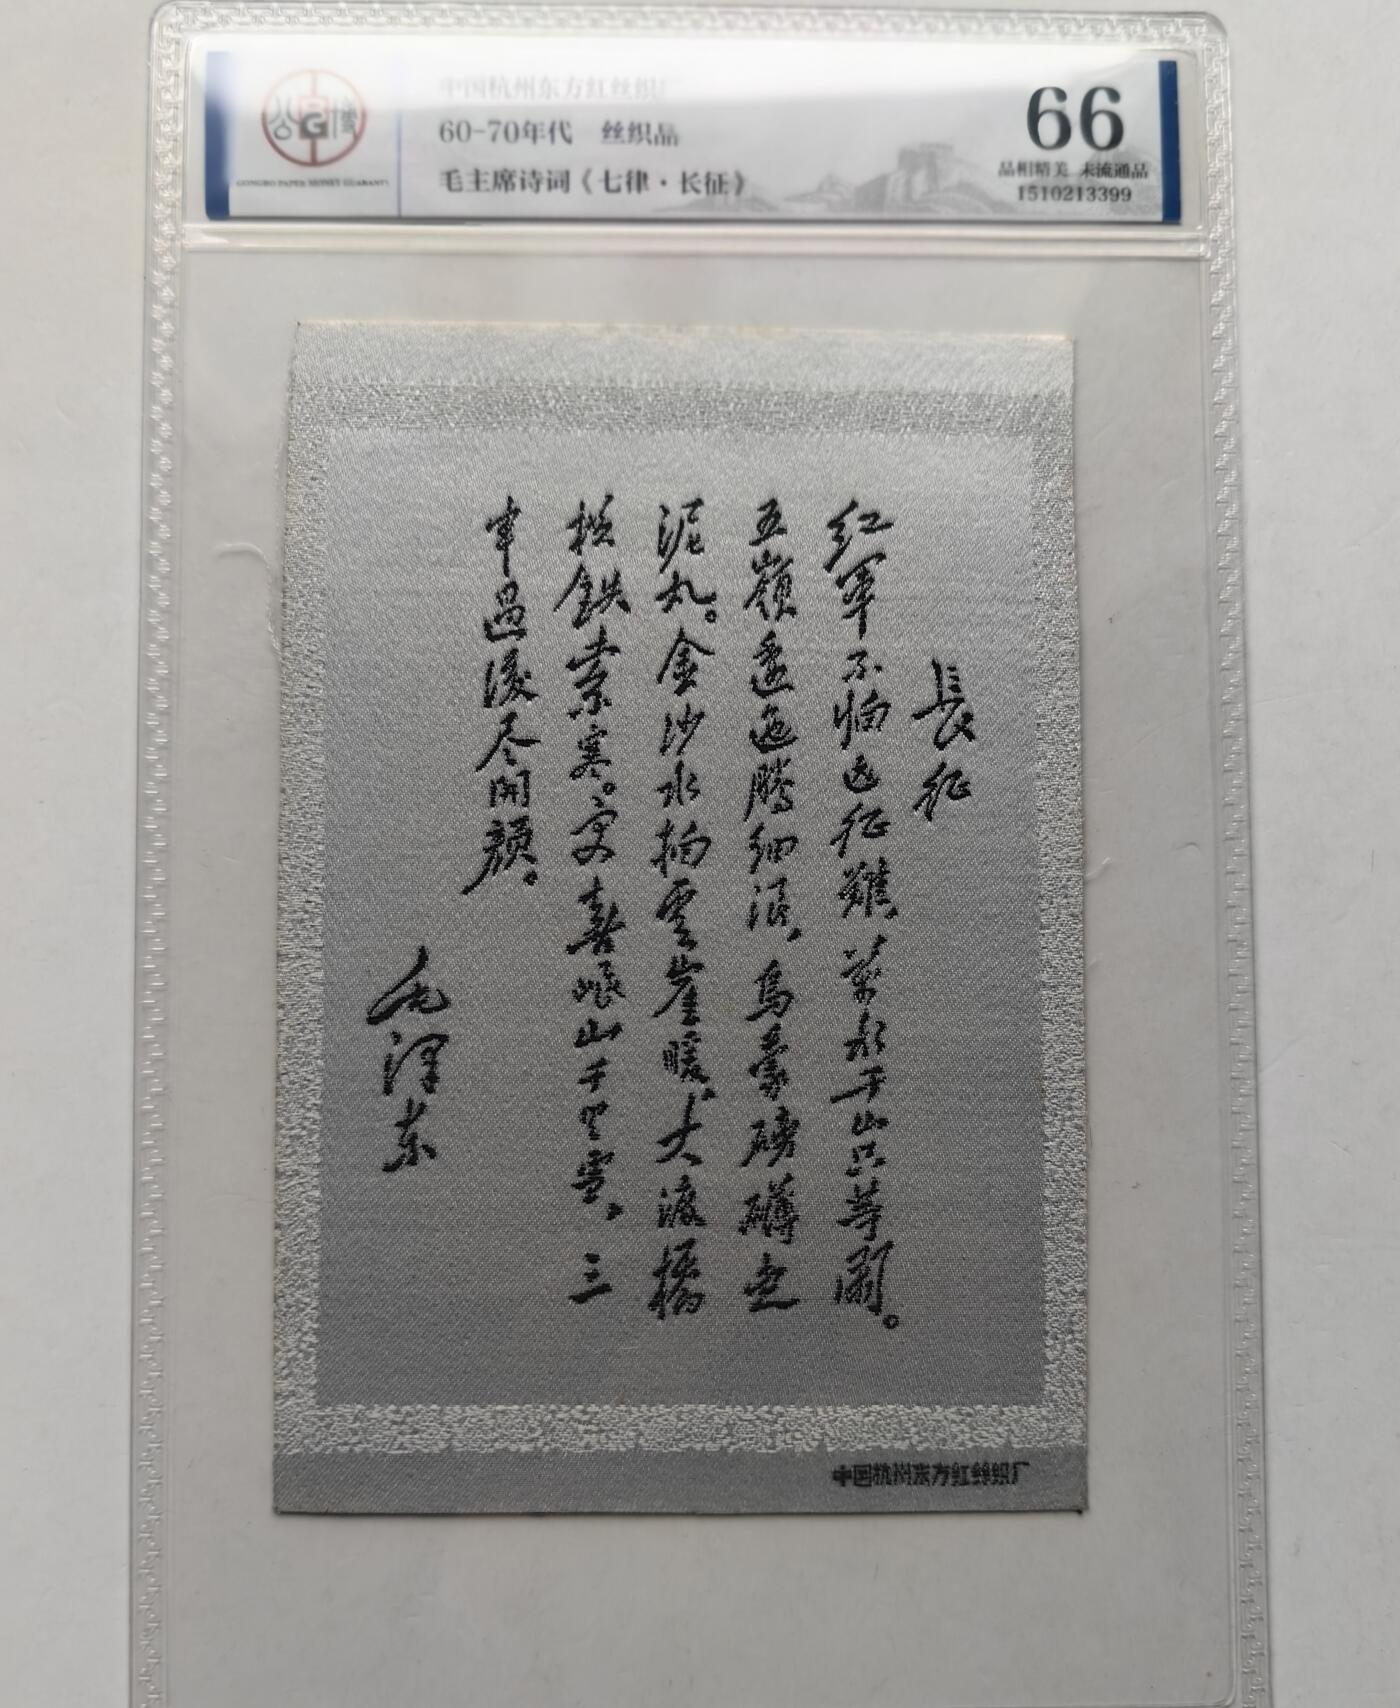 公博
G
GONGBO PAPER MONEY GUARANTY
中国杭州东方红丝织厂
60-70年代 丝织品
毛主席诗词《七律·长征》
66
品相精美 未流通品
1510213399
長征
红軍不怕远征難，萬水千山只等闲。
五嶺逶迤腾细浪，烏蒙磅礴走
泥丸。金沙水拍雲崖暖，大渡橋
横鉄索寒。更喜岷山千里雪，三
軍过後尽開颜。
毛泽东
中国杭州东方红丝织厂